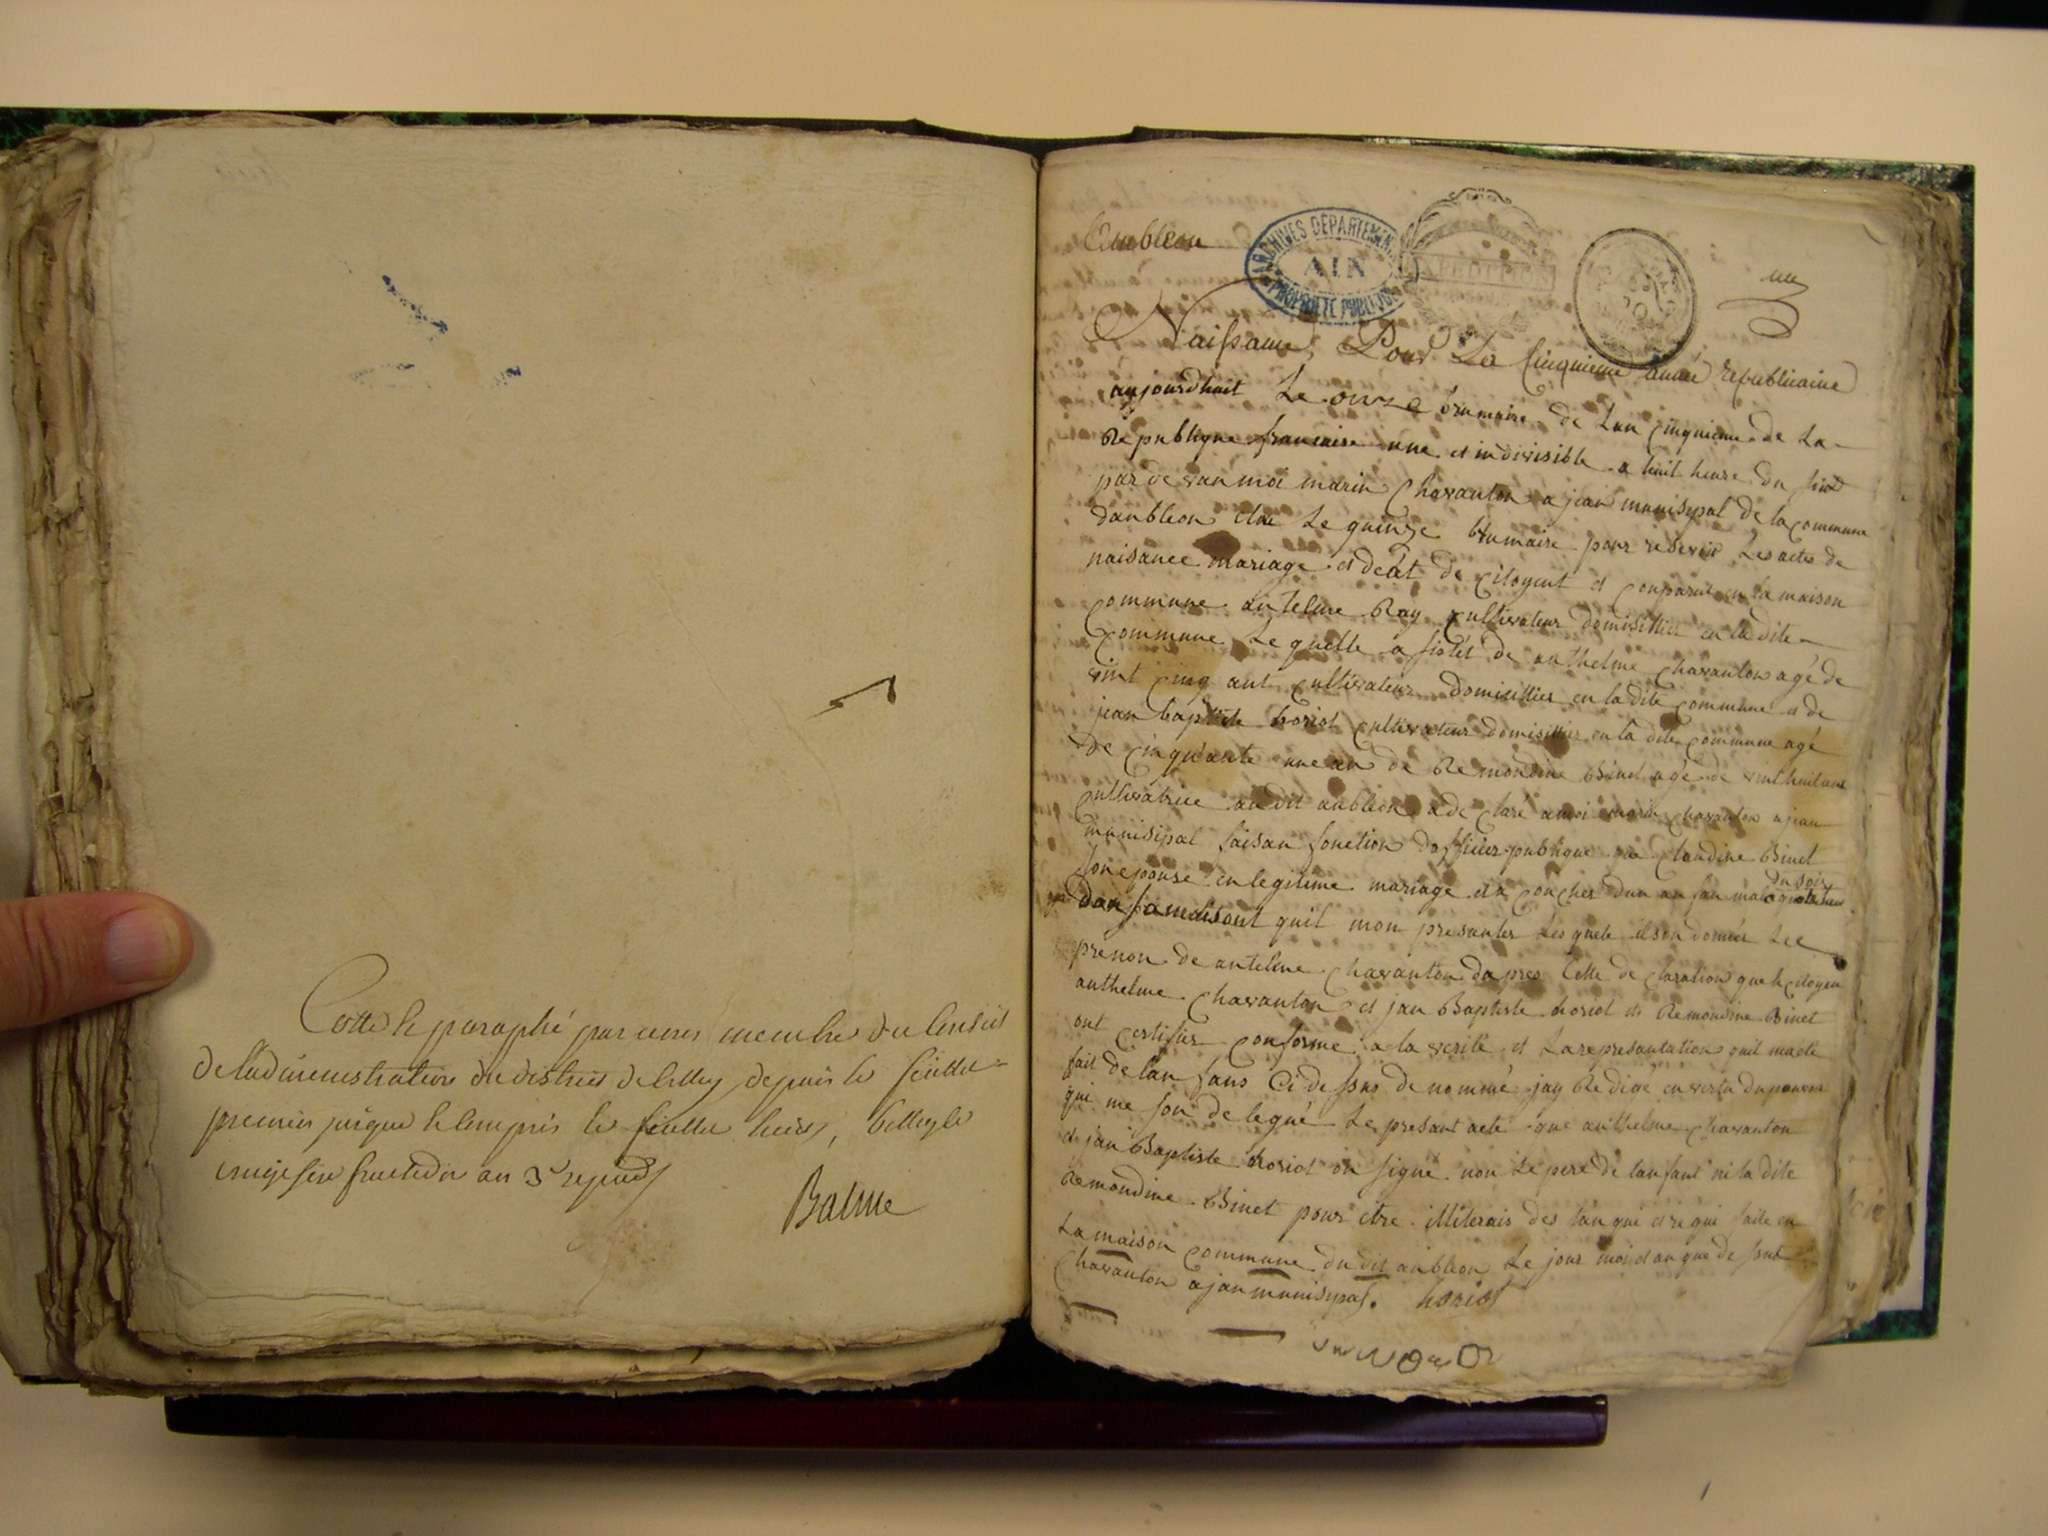 Cotté & paraphé par nous membre du Conseil
de l'administration du district de Belley depuis le feuillet
premier jusque & compris le feuillet
fructidor an 3e
Balme
Ambleon
ARCHIVES DÉPARTEMENT
AIN
PROPRIÉTÉ PUBLIQUE
Naissance Pour La Cinquieme année republicaine
aujourdhuit Le onze brumaire de Lan cinquieme de La
Republique francaise une et indivisible a huit heure du
par devan moi marin Chavanton a jean munisypal de la commune
danbleon elue Le quinze brumaire pour reservoir Les actes de
naisance mariage et decét de citoyent et conparut en la maison
commune antelme Ray cultivateur domisillier en la dite
commune Le quelle a sistét de anthelme Chavanton agé de
vint cinq ant cultivateur domisillier en la dite commune et de
jean baptiste horiot cultivateur domisillier en la dite commune agé
de cinquante une an de Remondine Binet agé de vint huit ans
cultivatrice au dit anbleon a de claré a moi marin chavanton ajean
munisipal faisan fonction dofficier publique que Claudine Binet
son epouse en legitime mariage et a coucher dun an fan male
du soir
dan sa maisont quil mon presanter Les quele il son donner Lee
prenon de antelme chavanton dapres Cette de claration que le citoyen
anthelme Chavanton et jan Baptiste horiot et Remondine Binet
ont certifier conforme a la verité et La represantation quil maété
fait de lan fans Ci de sus de nommé jay Redigé en vertu du pouvoir
qui me son de legué Le presant acte que anthelme Chavanton
et jan Baptiste horiot on signé non Le pere de lanfant ni la dite
Remondine Binet pour etre illiterais des lan qui et re qui faite en
La maison commune du dit anbleon Le jour mois et an que de sus
Chavanton ajan munisypal. horiot